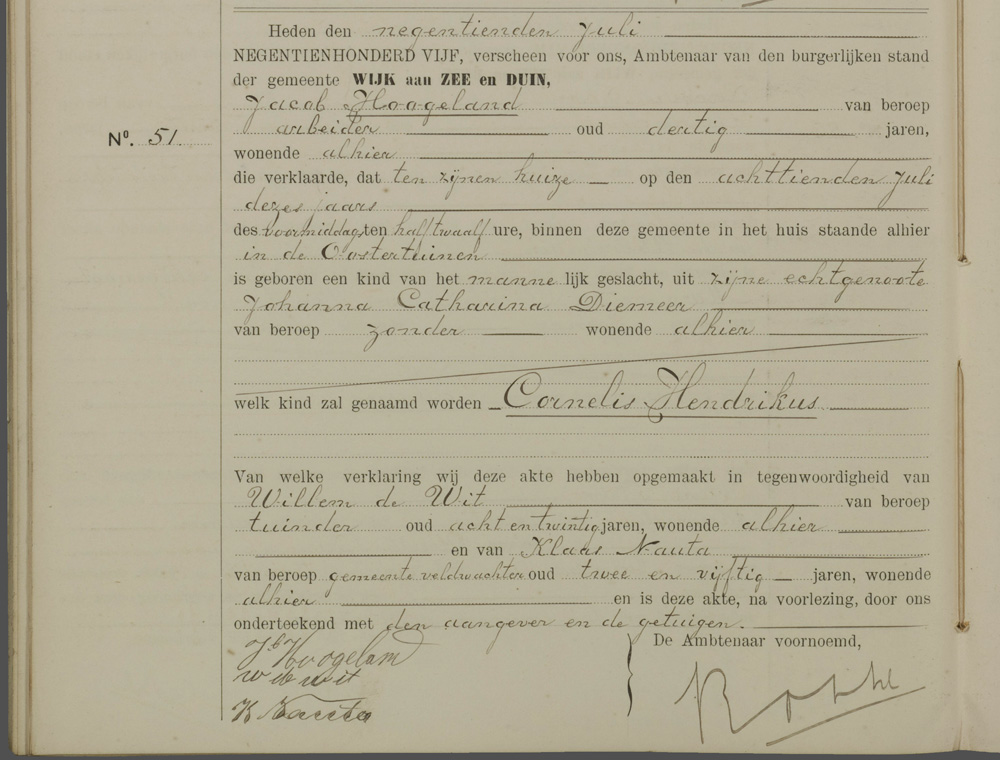 Heden den negentienden Juli
NEGENTIENHONDERD VIJF, verscheen voor ons, Ambtenaar van den burgerlijken stand
der gemeente WIJK aan ZEE en DUIN,
Jacob Hoogeland van beroep
Nº. 51. arbeider oud dertig jaren,
wonende alhier
die verklaarde, dat ten zijnen huize op den achttienden Juli
dezes jaars
des voormiddags ten half twaalf ure, binnen deze gemeente in het huis staande alhier
in de Oostertuinen
is geboren een kind van het mannelijk geslacht, uit zijne echtgenoote
Johanna Catharina Diemeer
van beroep zonder wonende alhier
welk kind zal genaamd worden Cornelis Hendrikus
Van welke verklaring wij deze akte hebben opgemaakt in tegenwoordigheid van
Willem de Wit van beroep
tuinder oud acht en twintig jaren, wonende alhier
en van Klaas Nauta
van beroep gemeente veldwachter oud twee en vijftig jaren, wonende
alhier en is deze akte, na voorlezing, door ons
onderteekend met den aangever en de getuigen.
De Ambtenaar voornoemd,
Hoogeland
W de Wit
K Nauta